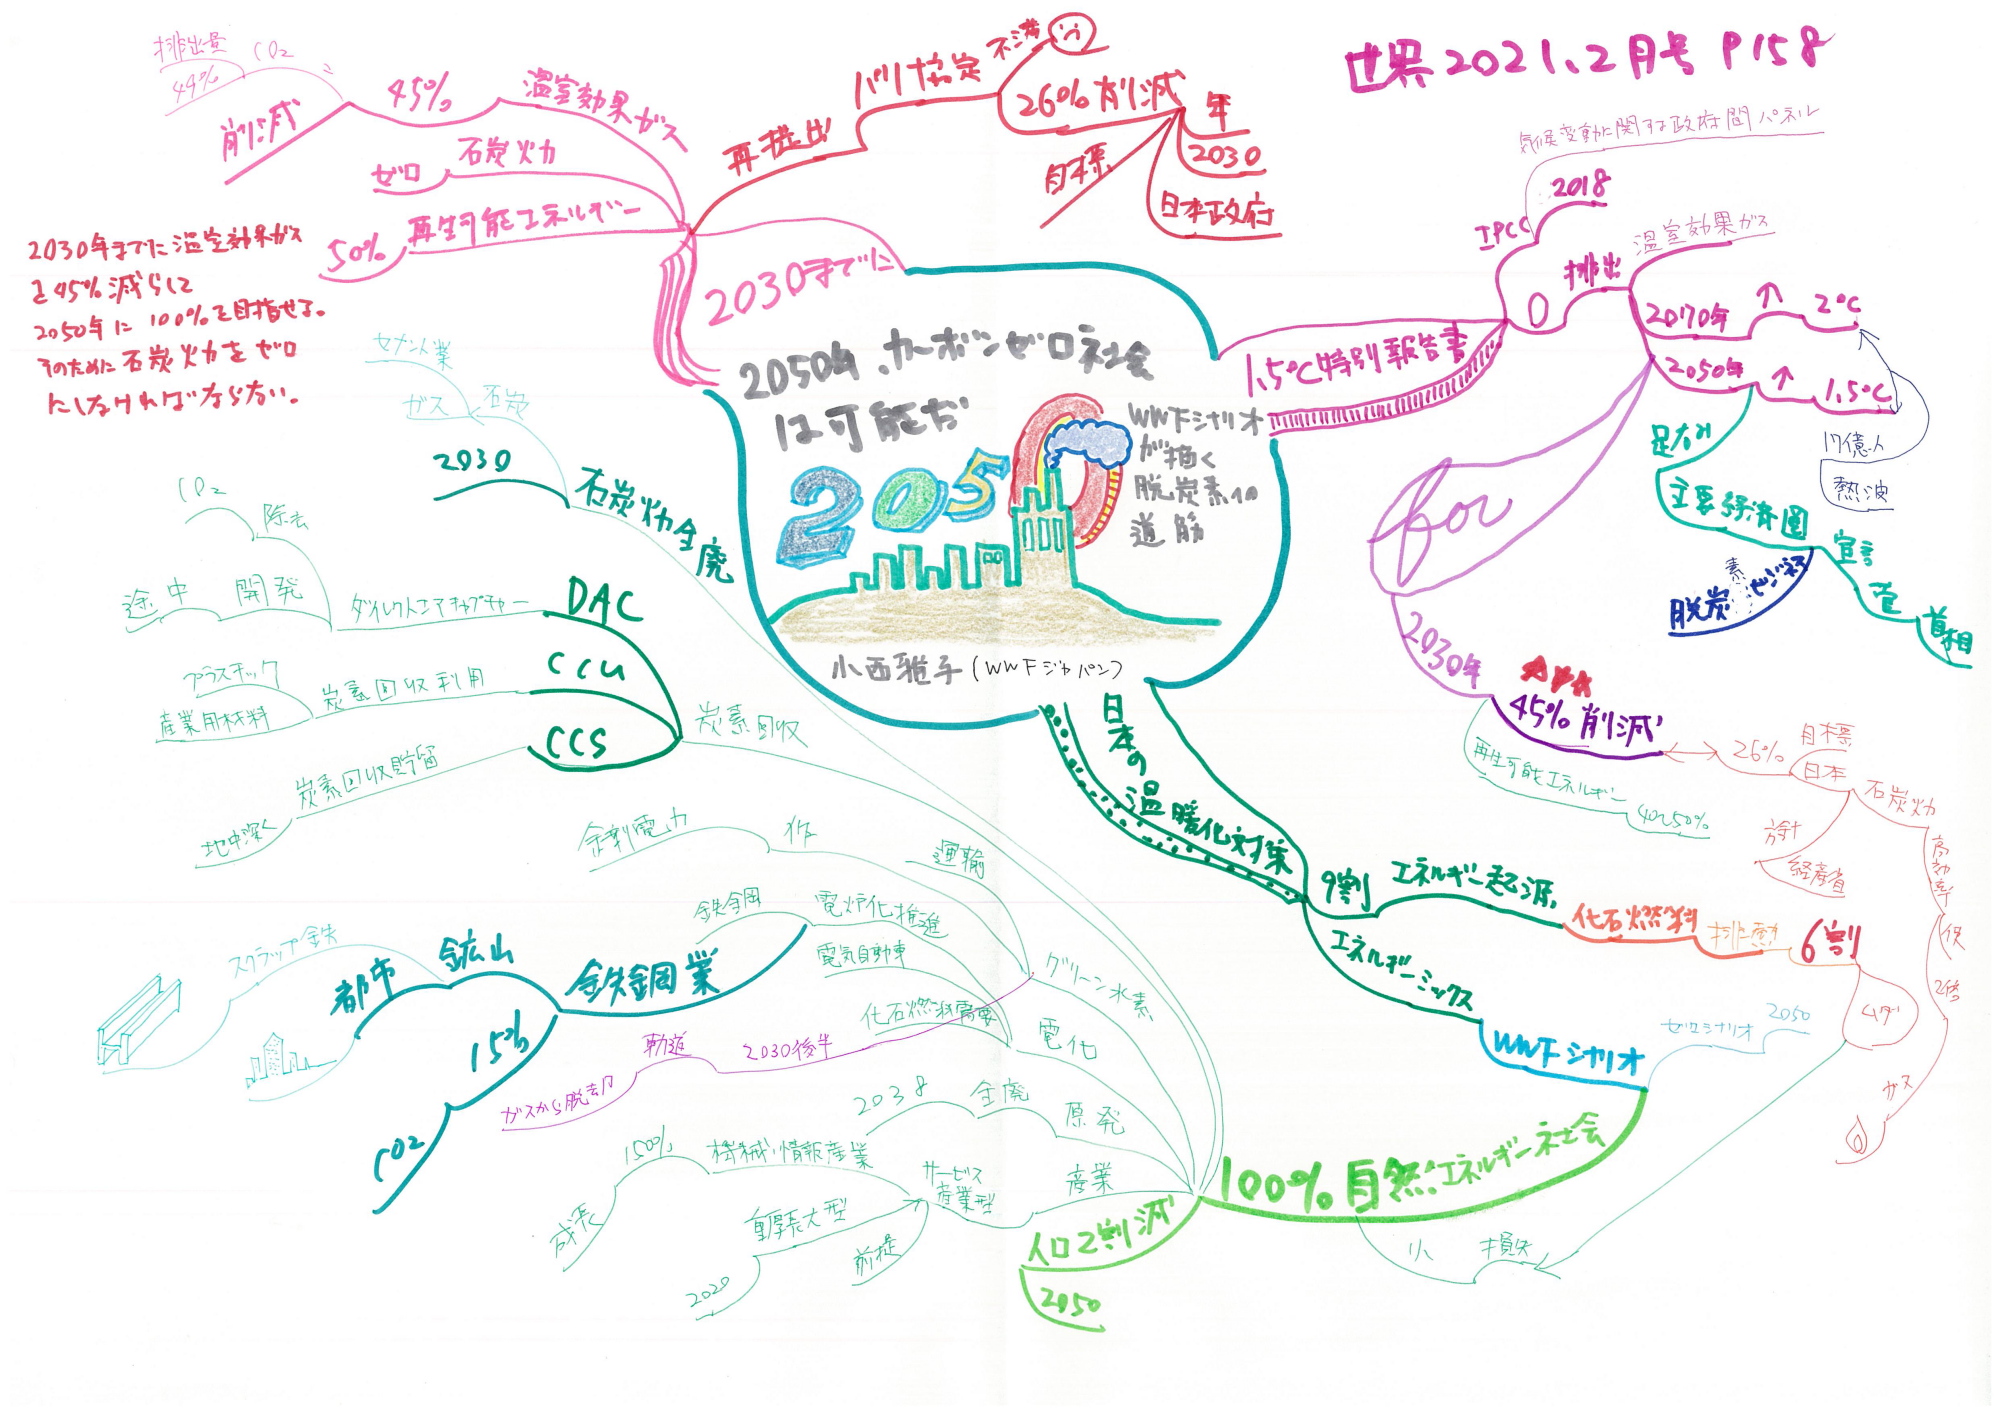 世界2021.2月号 P158
2050年、カーボンゼロ社会
は可能だ
2050
WWFシナリオ
が描く
脱炭素への
道筋
小西雅子(WWFジャパン)
1.5℃特別報告書
IPCC
2018
気候変動に関する政府間パネル
0
排出
温室効果ガス
2070年
↑
2℃
2050年
↑
1.5℃
17億人
熱波
足なみ
主要経済国
宣言
菅
首相
脱炭素
ビジネス
for
2030年
45%削減
再生可能エネルギー
40~50%
26%
目標
日本
石炭火力
高効率
方針
経産省
低
2倍
ガス
日本の温暖化対策
9割
エネルギー起源
化石燃料
排熱
6割
ムダ
エネルギーミックス
WWFシナリオ
ゼロシナリオ
2050
100%自然エネルギー社会
小
損失
人口2割減
2050
産業
サービス
産業型
機械、情報産業
150%
成長
重厚長大型
2020
前提
原発
全廃
2038
電化
電炉化推進
鉄鋼
電気自動車
化石燃料需要
鉄鋼業
鉱山
都市
スクラップ鉄
15%
CO2
グリーン水素
運輸
作
余剰電力
2030後半
軌道
ガスから脱却
炭素回収
DAC
ダイレクトエアキャプチャー
除去
CO2
開発
途中
CCU
炭素回収利用
プラスチック
産業用材料
CCS
炭素回収貯留
地中深く
石炭火力全廃
2030
石炭
ガス
セメント業
2030までに
再提出
パリ協定
不満
26%削減
年
2030
目標
日本政府
温室効果ガス
45%
削減
CO2
排出量
44%
石炭火力
ゼロ
再生可能エネルギー
50%
2030年までに温室効果ガス
を45%減らして
2050年に100%を目指せよ。
そのために石炭火力をゼロ
にしなければならない。